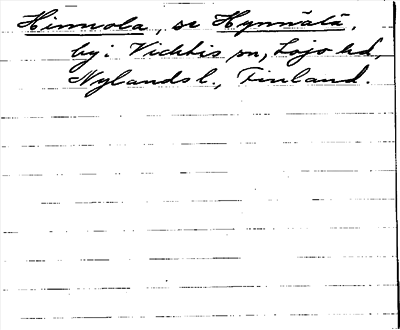 Hinnola, se Hynnälä,
by: Vichtis sn, Lojo hd,
Nylands l., Finland.